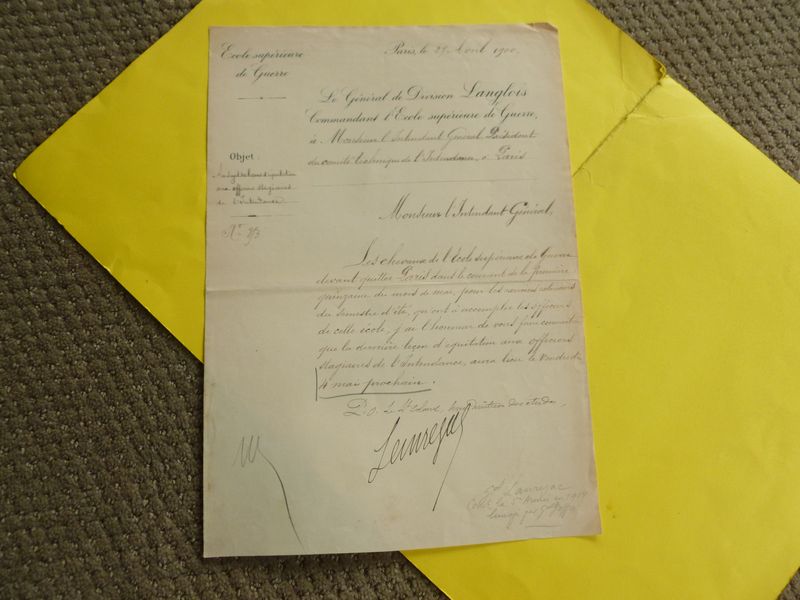 Ecole supérieure
de Guerre
Paris, le 27 Avril 1900.
Le Général de Division Langlois
Commandant l'Ecole supérieure de Guerre,
à Monsieur l'Intendant Général Président
du comité technique de l'Intendance, à Paris
Objet :
d'équitation
aux officiers stagiaires
de l'Intendance
Monsieur l'Intendant Général,
Les chevaux de l'école supérieure de Guerre
devant quitter Paris dans le courant de la première
quinzaine du mois de mai, pour les
du semestre d'été, qu'ont à accomplir les officiers
de cette école, j'ai l'honneur de vous faire connaitre
que la dernière leçon d'équitation aux officiers
stagiaires de l'Intendance, aura lieu le Vendredi
4 mai prochain.
P.O. Le Lt Colonel, Directeur des études
Lanrezac
Gal Lanrezac
la 5e Armée en 1914
limogé par Joffre